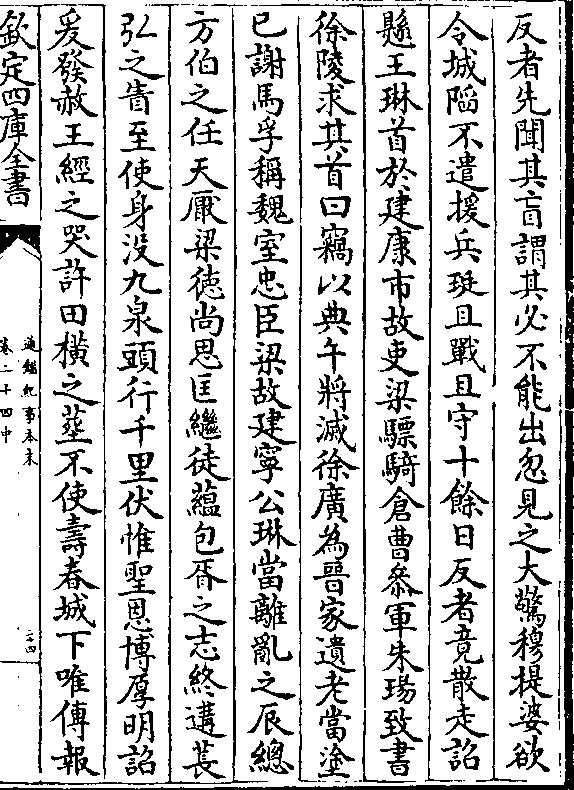 反者先聞其盲謂其必不能出忽見之大驚穆提婆欲
令城陷不遣援兵珽且戰且守十餘日反者竟散走詔
懸王琳首於建康市故吏梁驃騎倉曹叅軍朱瑒致書
徐陵求其首曰竊以典午將滅徐廣為晉家遺老當塗
已謝馬孚稱魏室忠臣梁故建寧公琳當離亂之辰緫
方伯之任天厭梁徳尚思匡繼徒蘊包胥之志終遘萇
弘之眚至使身没九泉頭行千里伏惟聖恩博厚明詔
爰發赦王經之哭許田横之葬不使壽春城下唯傳報
欽定四庫全書
通鑑紀事本末
卷二十四中
三四